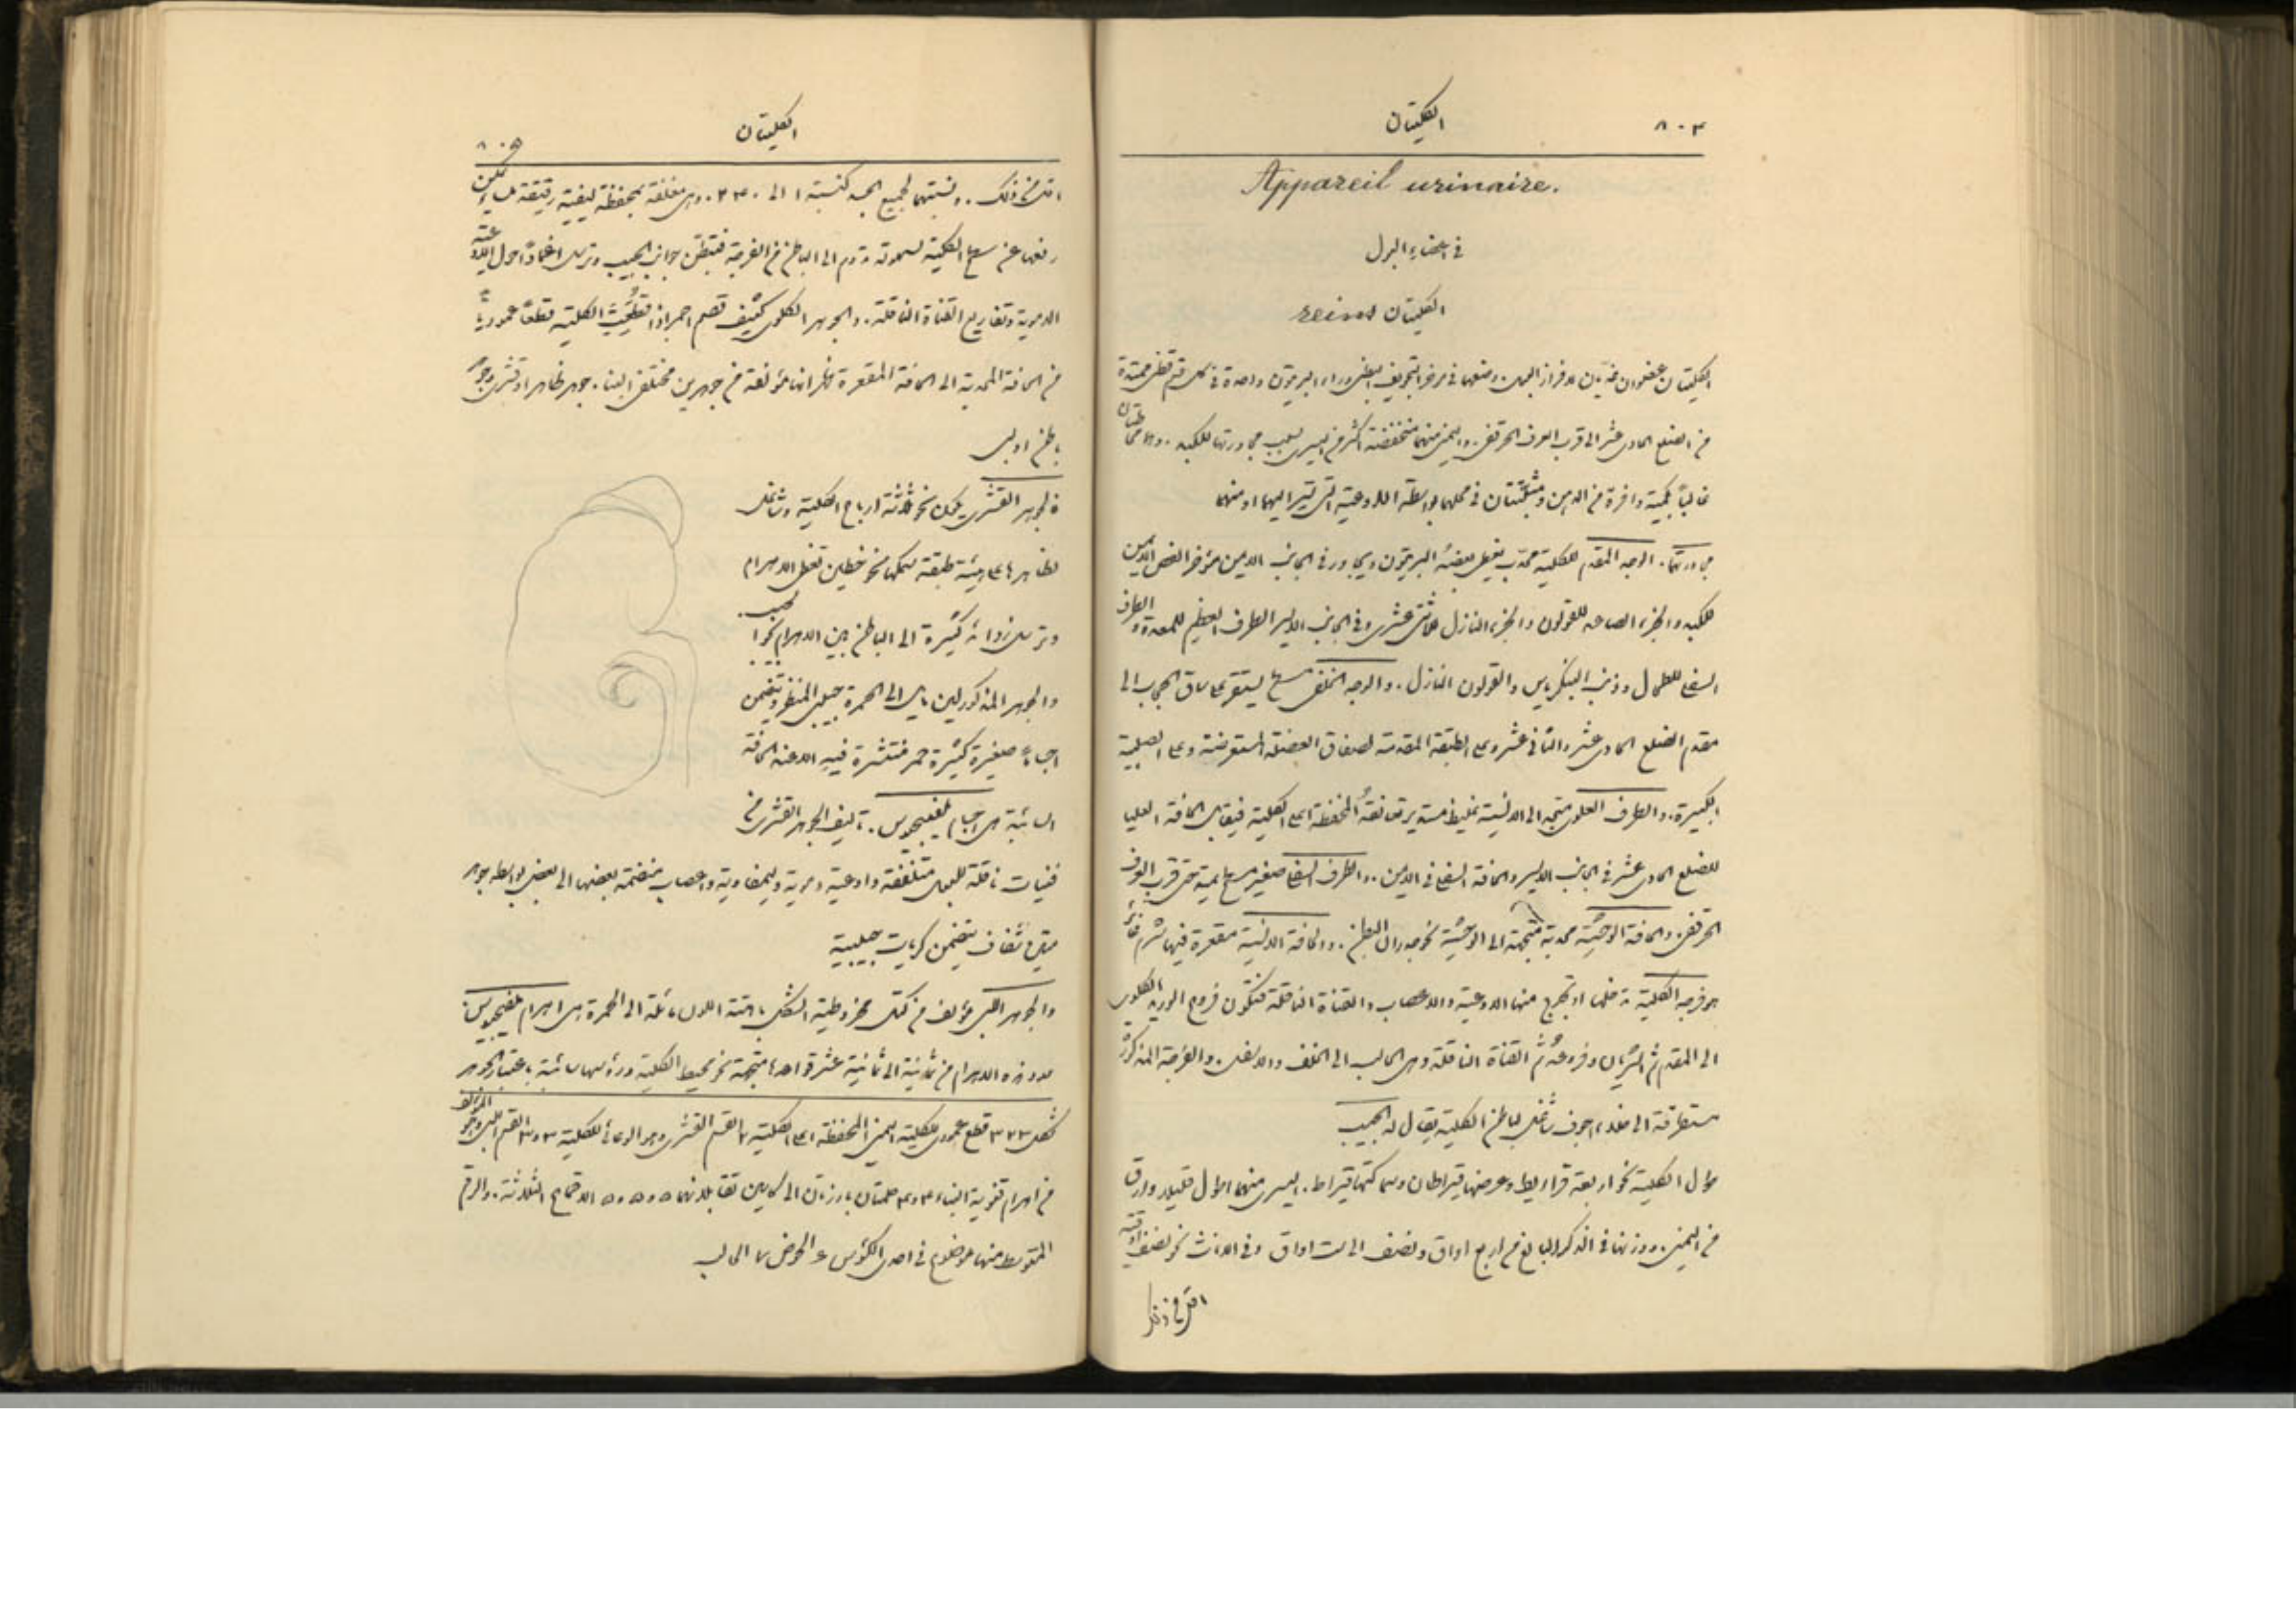 ٨٠٤
الكليتان
Appareil urinaire.
في اعضاء البول
الكليتان reins
الكليتان عضوان غديان لافراز البول. وضعهما في مؤخر التجويف البطني وراء البريتون واحدة في كل قسم قطني ممتدة
من الضلع الحادي عشر الى قرب العرف الحرقفي. واليمنى منهما منخفضة اكثر من اليسرى بسبب مجاورتها للكبد. وهما محاطتان
غالباً بكمية وافرة من الدهن ومثبتتان في محلهما بواسطة الاوعية التي تسير اليهما او منهما
مجاورتهما. الوجه المقدم للكلية محدب يغطي بعضهُ البريتون ويجاور في الجانب الايمن مؤخر الفص الايمن
للكبد والجزء الصاعد للقولون والجزء النازل للاثني عشري وفي الجانب الايسر الطرف العظيم للمعدة والطرف
السفلي للطحال وذنب البنكرياس والقولون النازل. والوجه الخلفي مسطح يستقر على ساق الحجاب الى
مقدم الضلع الحادي عشر والثاني عشر وعلى الطبقة المقدمة لصفاق العضلة المستعرضة وعلى الصلبية
الكبيرة. والطرف العلوي متجه الى الانسية غليظ مستدير تعانقهُ المحفظة اعلى الكلية فيقابل الحافة العليا
للضلع الحادي عشر في الجانب الايسر والحافة السفلى في الايمن. والطرف السفلي صغير مسطح يمتد حتى قرب العرف
الحرقفي. والحافة الوحشية محدبة متجهة الى الوحشية نحو جدران البطن. والحافة الانسية مقعرة فيها شرم غائر
هو فرجة الكلية تدخلها او تخرج منها الاوعية والاعصاب والقناة الناقلة فتكون فروع الوريد الكلوي
الى المقدم ثم الشريان وفروعهُ ثم القناة الناقلة وهي الحالب الى الخلف والاسفل. والفرجة المذكورة
مستطرقة الى خلاء اجوف شاغل لباطن الكلية يقال له الجيب
طول الكلية نحو اربعة قراريط وعرضها قيراطان وسماكتها قيراط. اليسرى منهما اطول قليلا وارق
من اليمنى. ووزنها في الذكر البالغ من اربع اواق ونصف الى ست اواق وفي الاناث نحو نصف اوقية
اقل من ذلك
٨٠٥
الكليتان
اقل من ذلك. ونسبتهما لجميع الجسد كنسبة ١ الى ٢٤٠. وهي مغلفة بمحفظة ليفية رقيقة ملساء يمكن
رفعها عن سطح الكلية بسهولة تدوم الى الباطن من الفرجة فتبطن جوانب الجيب وترسل اغماداً حول الاوعية
الدموية وتفاريع القناة الناقلة. والجوهر الكلوي كثيف قصم احمر اذا قطعت الكلية قطعاً عمودياً
من الحافة المحدبة الى الحافة المقعرة ظهر انها مؤلفة من جوهرين مختلفي البناء. جوهر ظاهر او قشري وجوهر
باطن او لبي
فالجوهر القشري يكون نحو ثلاثة ارباع الكلية وشاغل
لظاهرها على هيئة طبقة سمكها نحو خطين تغطي الاهرام
وترسل زوائد كثيرة الى الباطن بين الاهرام نحو الجيب
والجوهر المذكور لين مايل الى الحمرة حبيبي المنظر ويتضمن
اجساماً صغيرة كثيرة حمر منتشرة فيهِ الا عند الحافة
السائبة هي اجسام ملفيجيوس. تاليف الجوهر القشري من
قنيات ناقلة للبول متلففة واوعية دموية وليمفاوية واعصاب منضمة بعضها الى بعض بواسطة جوهر
متين شفاف يتضمن كريات حبيبية
والجوهر اللبي مؤلف من كتل مخروطية الشكل باهتة اللون مائلة الى الحمرة هي اهرام ملفيجيوس
عدد هذه الاهرام من ثمانية الى ثمانية عشر قواعدها متجهة نحو محيط الكلية ورؤوسها سائبة باعتبار الجوهر
شكل ٣٢٣ قطع عمودي للكلية اليمنى ١ المحفظة اعلى الكلية ٢ القسم القشري وهو الوعائي للكلية ٣ و٣ القسم اللبي وهو المؤلف
من اهرام قنوية البناء ٤ و٤ حلمتان بارزتان الى كاسين تقابلانهما ٥ ٥ ٥ الاقماع الثلاثة. والرقم
المتوسط منها موضوع في احدى الكؤوس ٦ الحوض ٧ الحالب